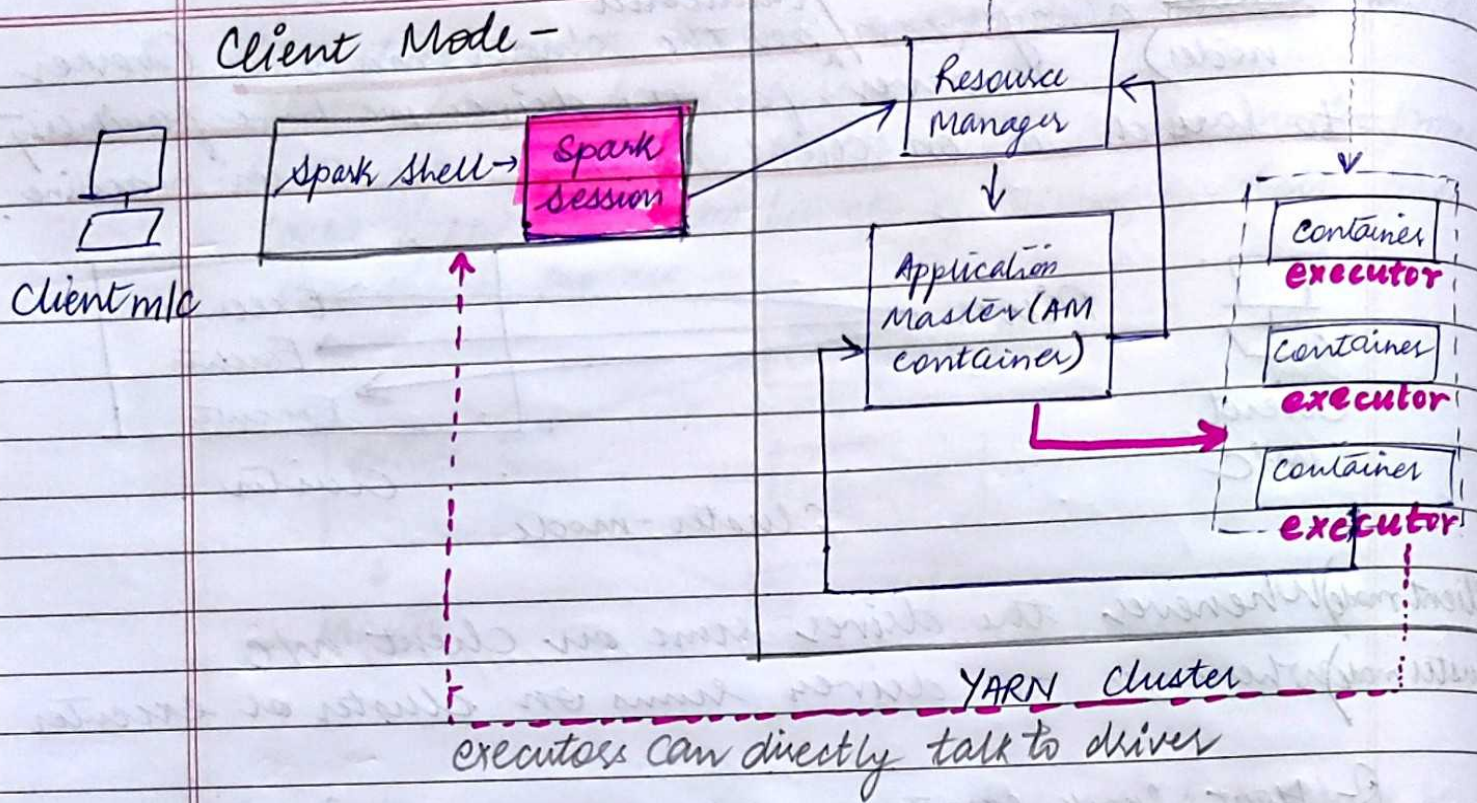 Client Mode -
Spark Shell →
Spark
Session
Client m/c
Resource
Manager
Application
Master (AM
container)
Container
executor
Container
executor
Container
executor
YARN Cluster
executors can directly talk to driver